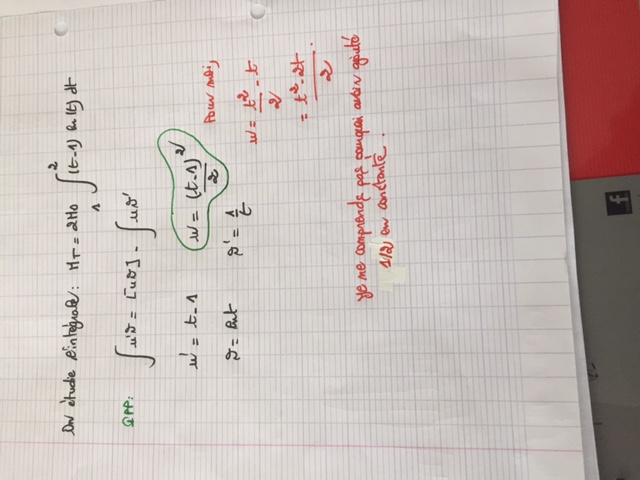 On étudie l'intégrale: H_T = 2H_0 ∫_1^2 (t-1) ln(t) dt
IPP: ∫u'v = [uv] - ∫uv'
u' = t-1 u = (t-1)²/2
v = ln t v' = 1/t
Pour moi,
u = t²/2 - t
= (t²-2t)/2.
Je ne comprends pas pourquoi avoir ajouté
1/2 en constante.
f